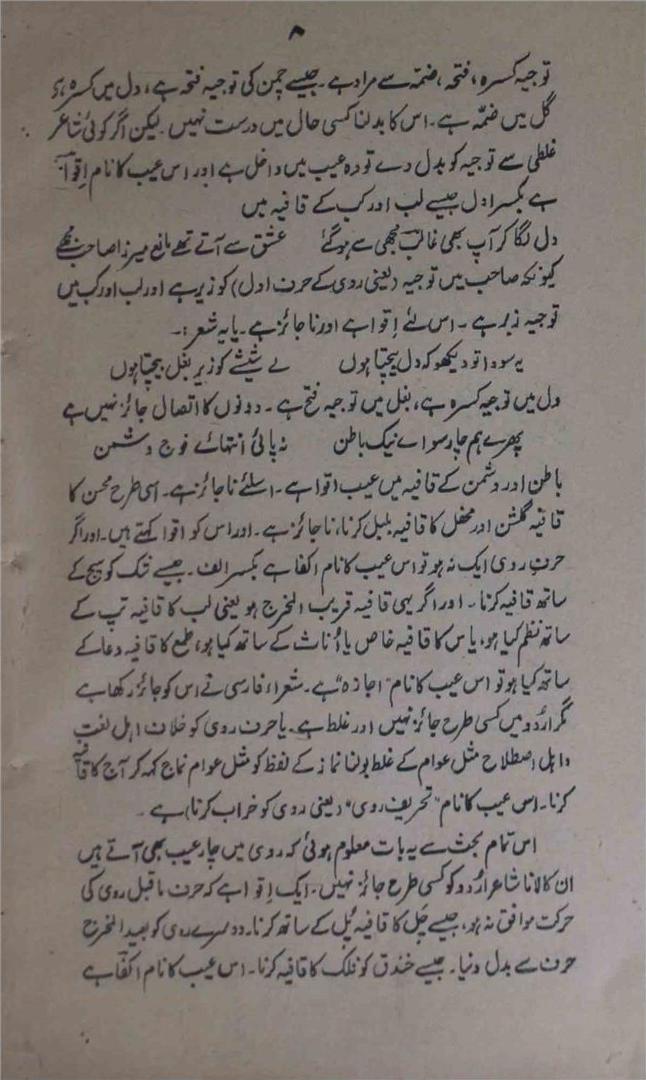 ۸
توجیہ کسرہ، فتحہ، ضمّہ سے مراد ہے۔ جیسے چمن کی توجیہ فتحہ ہے، دل میں کسرہ ہے
گل میں ضمّہ ہے۔ اس کا بدلنا کسی حال میں درست نہیں۔ لیکن اگر کوئی شاعر
غلطی سے توجیہ کو بدل دے تو وہ عیب میں داخل ہے اور اس عیب کا نام اِقوا
ہے بکسر اول جیسے لب اور کب کے قافیہ میں
دل لگا کر آپ بھی غالب مجھی سے ہو گئے عشق سے آتے تھے مانع میرزا صاحب مجھے
کیونکہ صاحب میں توجیہ (یعنی روی کے حرف اول) کو زیر ہے اور لب اور کب میں
توجیہ زبر ہے۔ اس لئے اِقوا ہے اور ناجائز ہے۔ یا یہ شعر :۔
یہ سودا تو دیکھو کہ دل بیچتا ہوں لئے شیشے کو زیر بغل بیچتا ہوں
دل میں توجیہ کسرہ ہے، بغل میں توجیہ فتح ہے۔ دونوں کا اتصال جائز نہیں ہے
پھرے ہم چار سو اے نیک باطن نہ پائی انتہائے فوج دشمن
باطن اور دشمن کے قافیہ میں عیب اقوا ہے۔ اسلئے ناجائز ہے۔ اسی طرح محسن کا
قافیہ گلشن اور محفل کا قافیہ بلبل کرنا، ناجائز ہے۔ اور اس کو اقوا کہتے ہیں۔ اور اگر
حرف روی ایک نہ ہو تو اس عیب کا نام اکفا ہے بکسر الف۔ جیسے شک کو سچ کے
ساتھ قافیہ کرنا۔ اور اگر یہی قافیہ قریب المخرج ہو یعنی لب کا قافیہ تپ کے
ساتھ نظم کیا ہو، یا س کا قافیہ خاص یا اُناث کے ساتھ کیا ہو، طمع کا قافیہ دعا کے
ساتھ کیا ہو تو اس عیب کا نام "اجازہ" ہے۔ شعراء فارسی نے اس کو جائز رکھا ہے
مگر اردو میں کسی طرح جائز نہیں اور غلط ہے۔ یا حرف روی کو خلاف اہل لغت
و اہل اصطلاح مثل عوام کے غلط بولنا نماز کے لفظ کو مثل عوام نماج کہہ کر آج کا قافیہ
کرنا۔ اس عیب کا نام "تحریف روی" (یعنی روی کو خراب کرنا) ہے۔
اس تمام بحث سے یہ بات معلوم ہوئی کہ روی میں چار عیب بھی آتے ہیں
ان کا لانا شاعر اُردو کو کسی طرح جائز نہیں۔ ایک اِقوا ہے کہ حرف ماقبل روی کی
حرکت موافق نہ ہو، جیسے چَل کا قافیہ پُل کے ساتھ کرنا۔ دوسرے روی کو بعید المخرج
حرف سے بدل دینا۔ جیسے خندق کو فلک کا قافیہ کرنا۔ اس عیب کا نام اکفا ہے